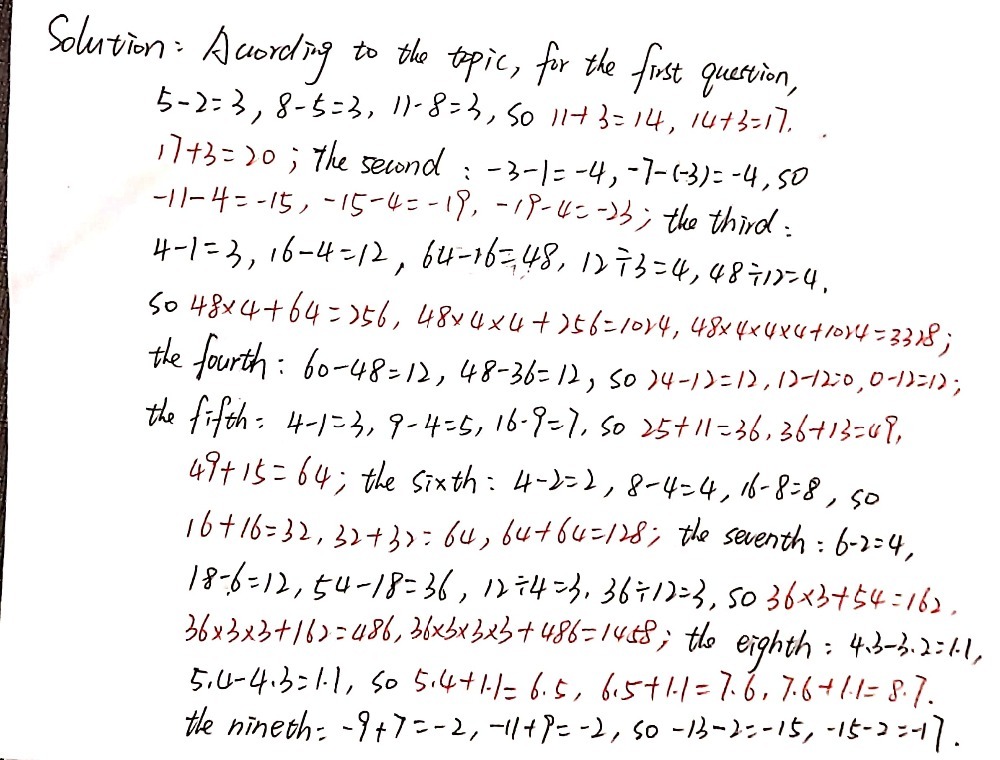 Solution: According to the topic, for the first question,
5-2=3, 8-5=3, 11-8=3, so 11+3=14, 14+3=17.
17+3=20; The second: -3-1=-4, -7-(-3)=-4, so
-11-4=-15, -15-4=-19, -19-4=-23; the third:
4-1=3, 16-4=12, 64-16=48, 12÷3=4, 48÷12=4.
So 48×4+64=256, 48×4×4+256=1024, 48×4×4×4+1024=3328;
the fourth: 60-48=12, 48-36=12, so 24-12=12, 12-12=0, 0-12=12;
the fifth: 4-1=3, 9-4=5, 16-9=7, so 25+11=36, 36+13=49,
49+15=64; the sixth: 4-2=2, 8-4=4, 16-8=8, so
16+16=32, 32+32=64, 64+64=128; the seventh: 6-2=4,
18-6=12, 54-18=36, 12÷4=3, 36÷12=3, so 36×3+54=162,
36×3×3+162=486, 36×3×3×3+486=1458; the eighth: 4.3-3.2=1.1,
5.4-4.3=1.1, so 5.4+1.1=6.5, 6.5+1.1=7.6, 7.6+1.1=8.7.
the nineth: -9+7=-2, -11+9=-2, so -13-2=-15, -15-2=-17.